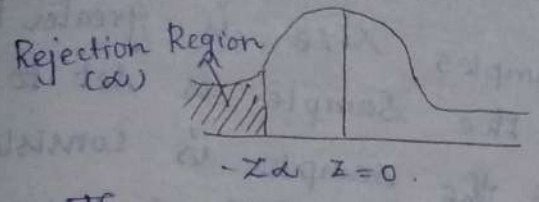 Rejection Region
(α)
-Zα Z=0.